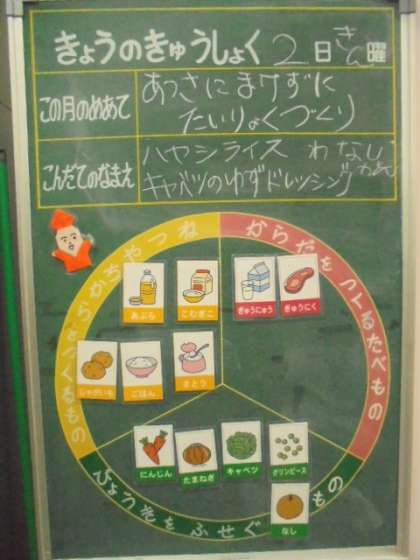 きょうのきゅうしょく 2日 きん曜
この月のめあて
あつさにまけずに
たいりょくづくり
こんだてのなまえ
ハヤシライス わなし
キャベツのゆずドレッシング
ちからやねつ
になるもの
からだをつくるたべもの
あぶら
こむぎこ
ぎゅうにゅう
ぎゅうにく
じゃがいも
ごはん
さとう
にんじん
たまねぎ
キャベツ
グリンピース
なし
びょうきをふせぐ
もの